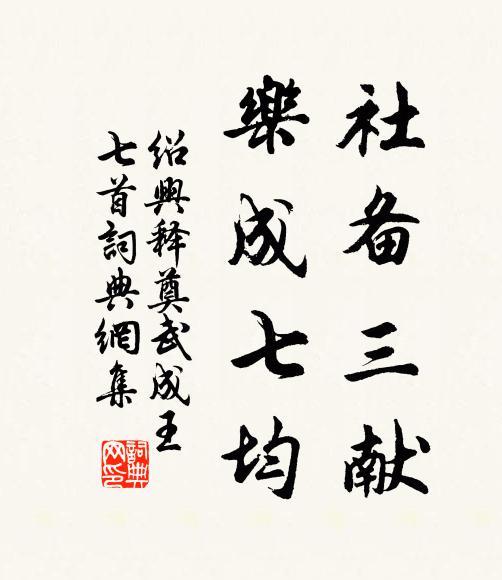 社备三献
樂成七均
绍興释奠武成王
七首詞典網集
詞典网印